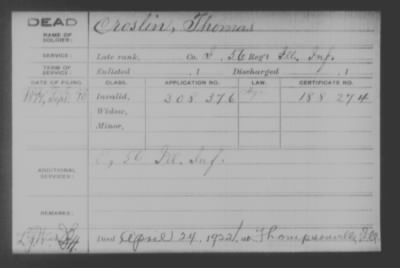 DEAD
Croslin, Thomas
NAME OF SOLDIER:
SERVICE:
Late rank, Co. I, 56 Reg't Ill. Inf.
TERM OF SERVICE:
Enlisted , 1 Discharged , 1
DATE OF FILING. CLASS. APPLICATION NO. LAW. CERTIFICATE NO.
Sept. Invalid, 308 376 188 274
Widow,
Minor,
ADDITIONAL SERVICES:
56 Ill. Inf.
REMARKS:
Died April 24, 1922, at Thompsonville, Ill